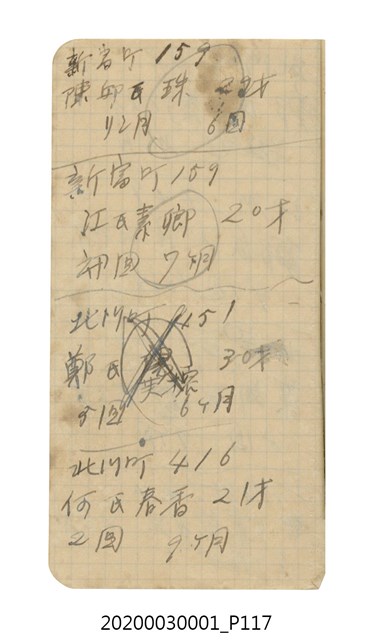 新富町 159
陳邱氏 珠 22才
6回
新富町 159
江氏素卿 20才
初回 7ヶ月
北川町 1151
鄭氏 30才
5回 6ヶ月
北川町 416
何氏春香 21才
2回 9ヶ月
20200030001_P117